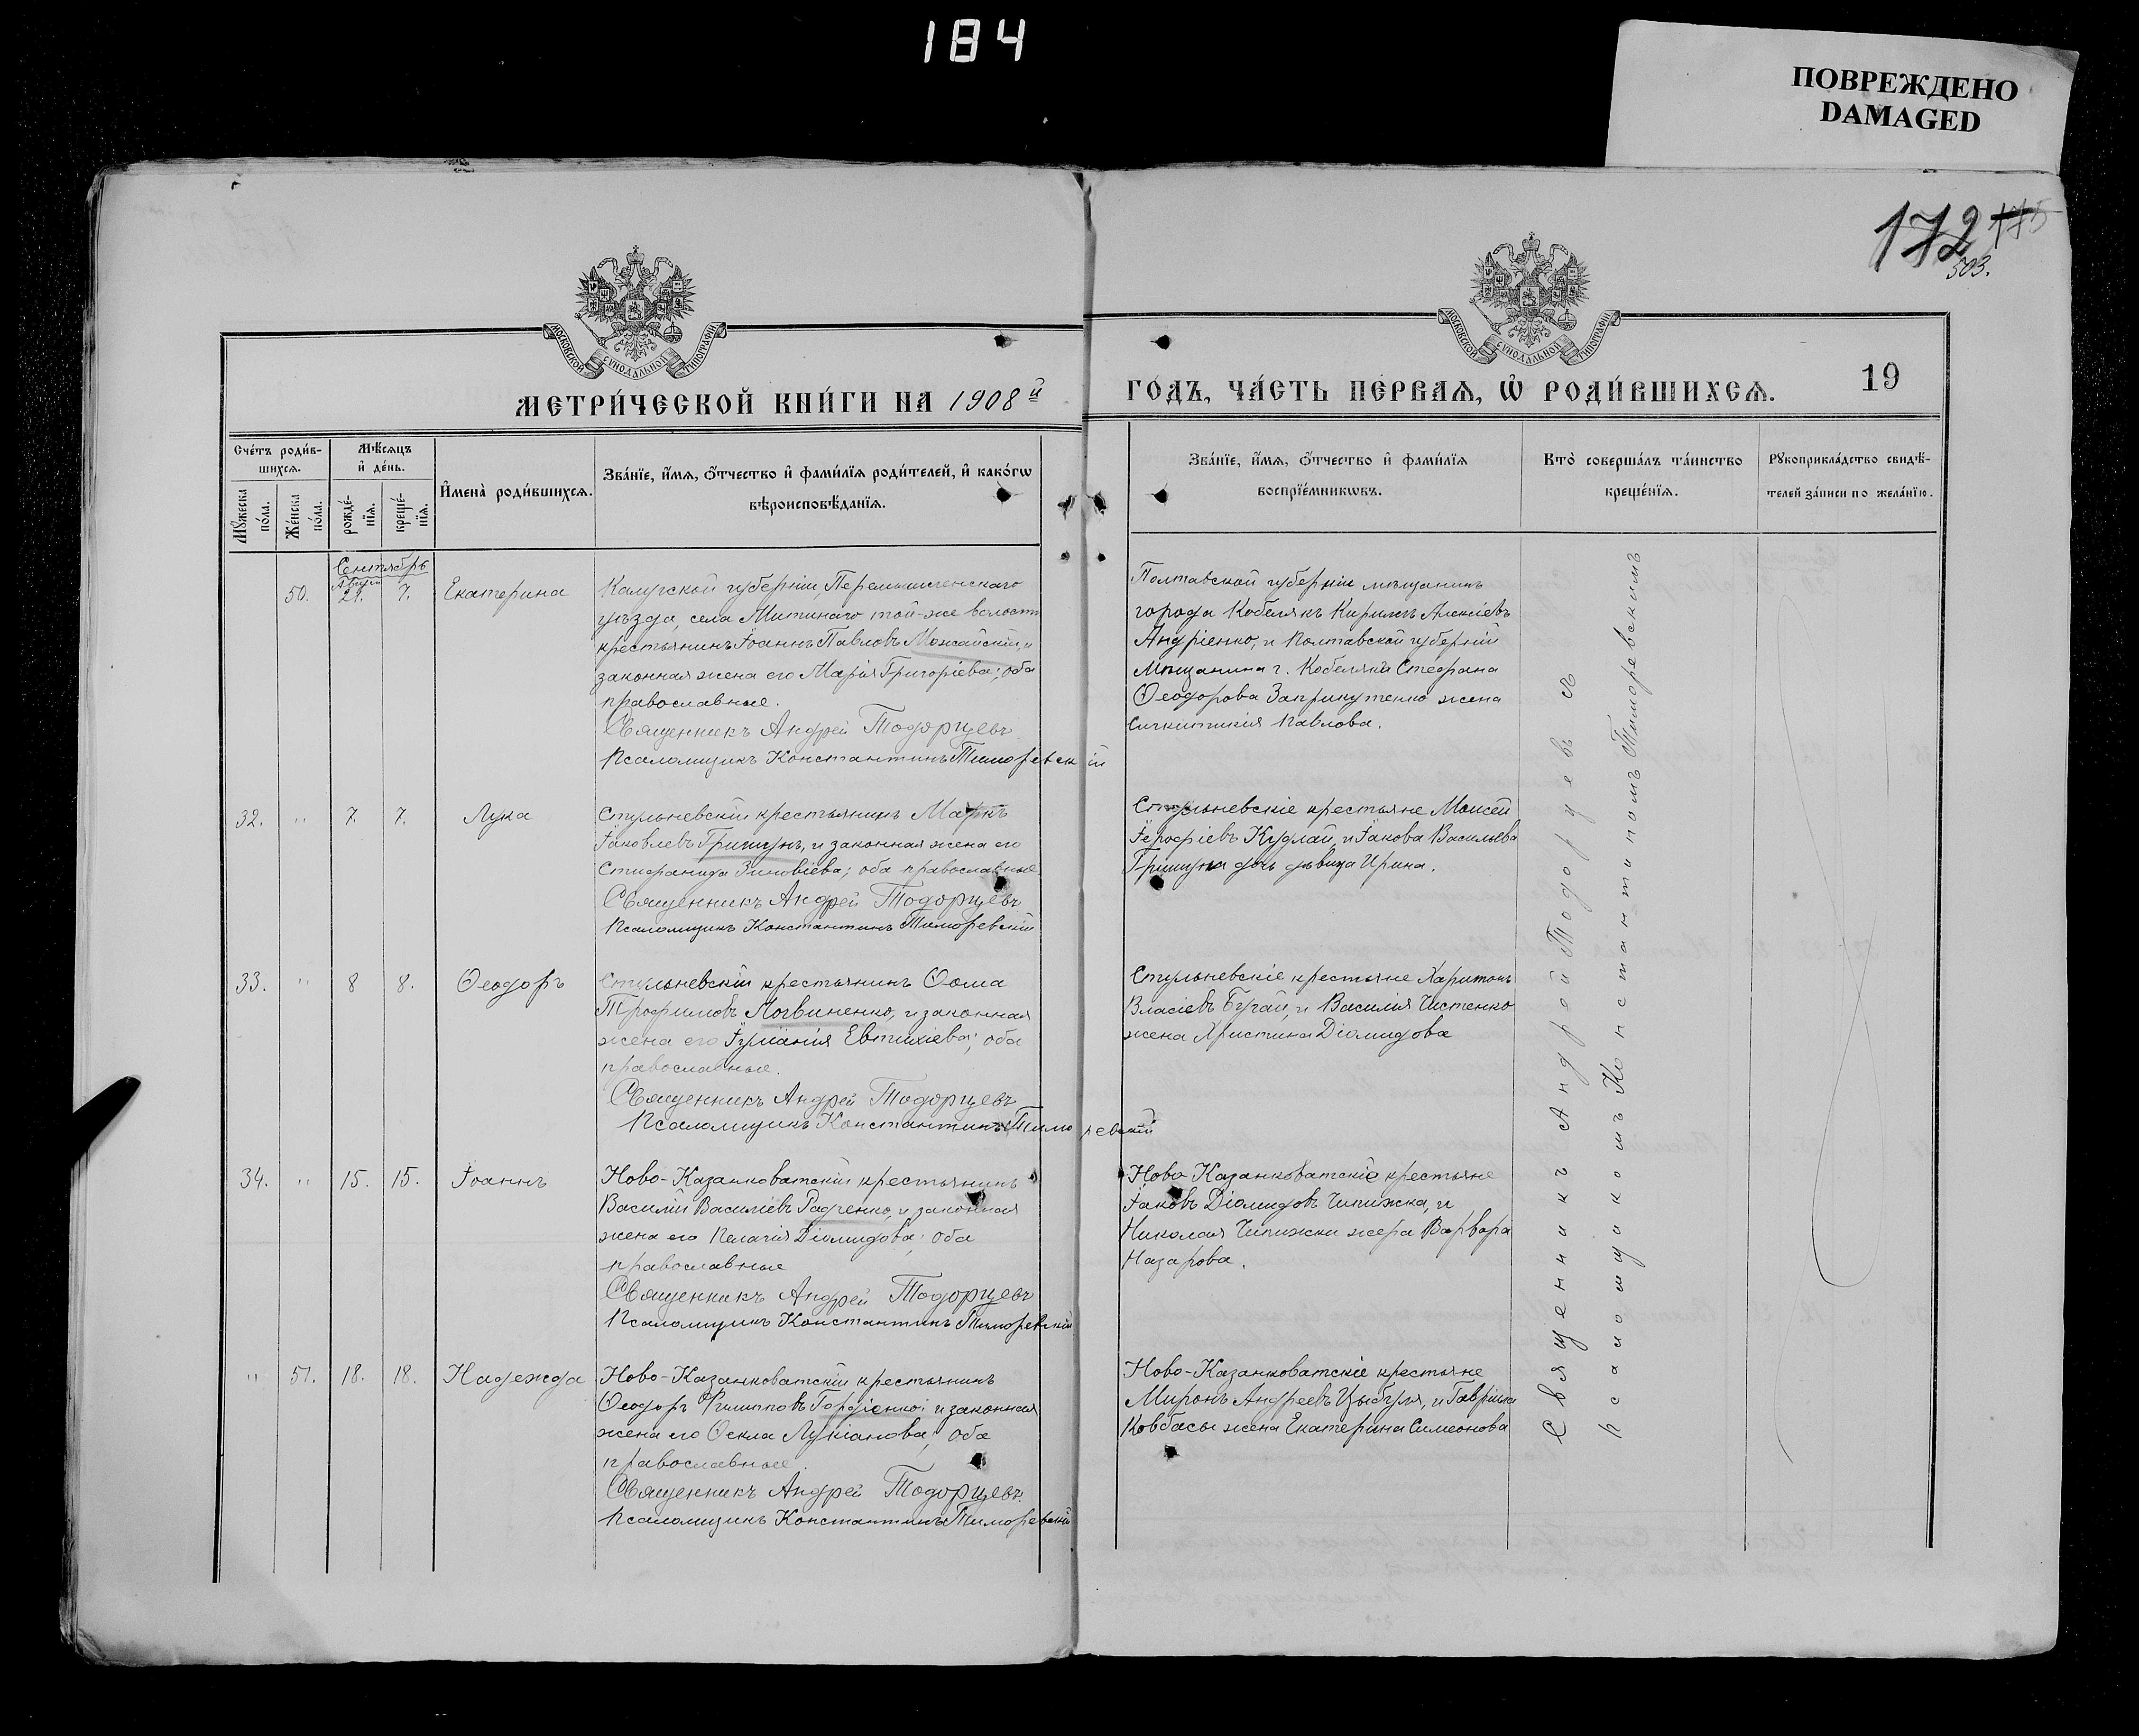 184
ПОВРЕЖДЕНО
DAMAGED
172 175
503.
МОСКОВСКОЙ СѴНОДАЛЬНОЙ ТИПОГРАФІИ
МОСКОВСКОЙ СѴНОДАЛЬНОЙ ТИПОГРАФІИ
МЕТРИ́ЧЕСКОЙ КНИ́ГИ НА 1908й
ГО́ДЪ, ЧА́СТЬ ПЕ́РВАѦ, Ѡ҆ РОДИ́ВШИХСѦ. 19
Сче́тъ роди́в-
шихсѧ.
Мꙋ́жеска по́ла.
Же́нска по́ла.
Мѣ́сѧцъ
и҆ де́нь.
рожде́-
нїѧ.
креще́-
нїѧ.
И҆мена̀ роди́вшихсѧ.
Зва́нїе, и҆́мѧ, ѻ҆́тчество и҆ фами́лїѧ роди́телей, и҆ како́гѡ
вѣроисповѣ́данїѧ.
Зва́нїе, и҆́мѧ, ѻ҆́тчество и҆ фами́лїѧ
воспрїе́мникѡвъ.
Кто̀ соверша́лъ та́инство
креще́нїѧ.
Рꙋкоприкла́дство свидѣ́-
телей за́писи по жела́нїю.
Сентябрь
Август
50. 29. 7. Екатерина
Калужской губерніи, Перемышленскаго
уѣзда, села Митинаго той-же волости
крестьянинъ Іоаннъ Павловъ Можайскій, и
законная жена его Марія Григоріева; оба
православные.
Священникъ Андрей Тодорцевъ
Псаломщикъ Константинъ Тиморевскій
Полтавской губерніи мѣщанинъ
города Кобелякъ Кириллъ Алексіевъ
Андріенко, и Полтавской губерніи
Мѣщанина г. Кобелякъ Стефана
Ѳеодорова Заприкутенко жена
Павлова.
32. " 7. 7. Лука
Стульневскій крестьянинъ Маркъ
Іаковлевъ Гришунъ, и законная жена его
Стефанида Зиновіева; оба православные
Священникъ Андрей Тодорцевъ
Псаломщикъ Константинъ Тиморевскій
Стульневскіе крестьяне Моисей
Іерофіевъ Кудлай, и Іакова Васильева
Гришуна дочь дѣвица Ирина.
33. " 8 8. Ѳеодоръ
Стульневскій крестьянинъ Ѳома
Трофимовъ Логвиненко, и законная
жена его Іуліанія Евтихіева; оба
православные.
Священникъ Андрей Тодорцевъ
Псаломщикъ Константинъ Тиморевскій
Стульневскіе крестьяне Харитонъ
Власіевъ Бугай, и Василія Чистенко
жена Христина Діомидова
34. " 15. 15. Іоаннъ
Ново-Казанковатскій крестьянинъ
Василій Василіевъ Радченко, и законная
жена его Пелагія Діомидова; оба
православные
Священникъ Андрей Тодорцевъ
Псаломщикъ Константинъ Тиморевскій
Ново-Казанковатскіе крестьяне
Іаковъ Діомидовъ Чипижка, и
Николая Чипижки жена Варвара
Назарова.
" 51. 18. 18. Надежда
Ново-Казанковатскій крестьянинъ
Ѳеодоръ Филипповъ Гордіенко; и законная
жена его Ѳекла Лукіанова; оба
православные.
Священникъ Андрей Тодорцевъ
Псаломщикъ Константинъ Тиморевскій
Ново-Казанковатскіе крестьяне
Миронъ Андреевъ Цыбуля, и Гавріила
Ковбасы жена Екатерина Симеонова
Священникъ Андрей Тодорцевъ съ
псаломщикомъ Константиномъ Тиморевскимъ